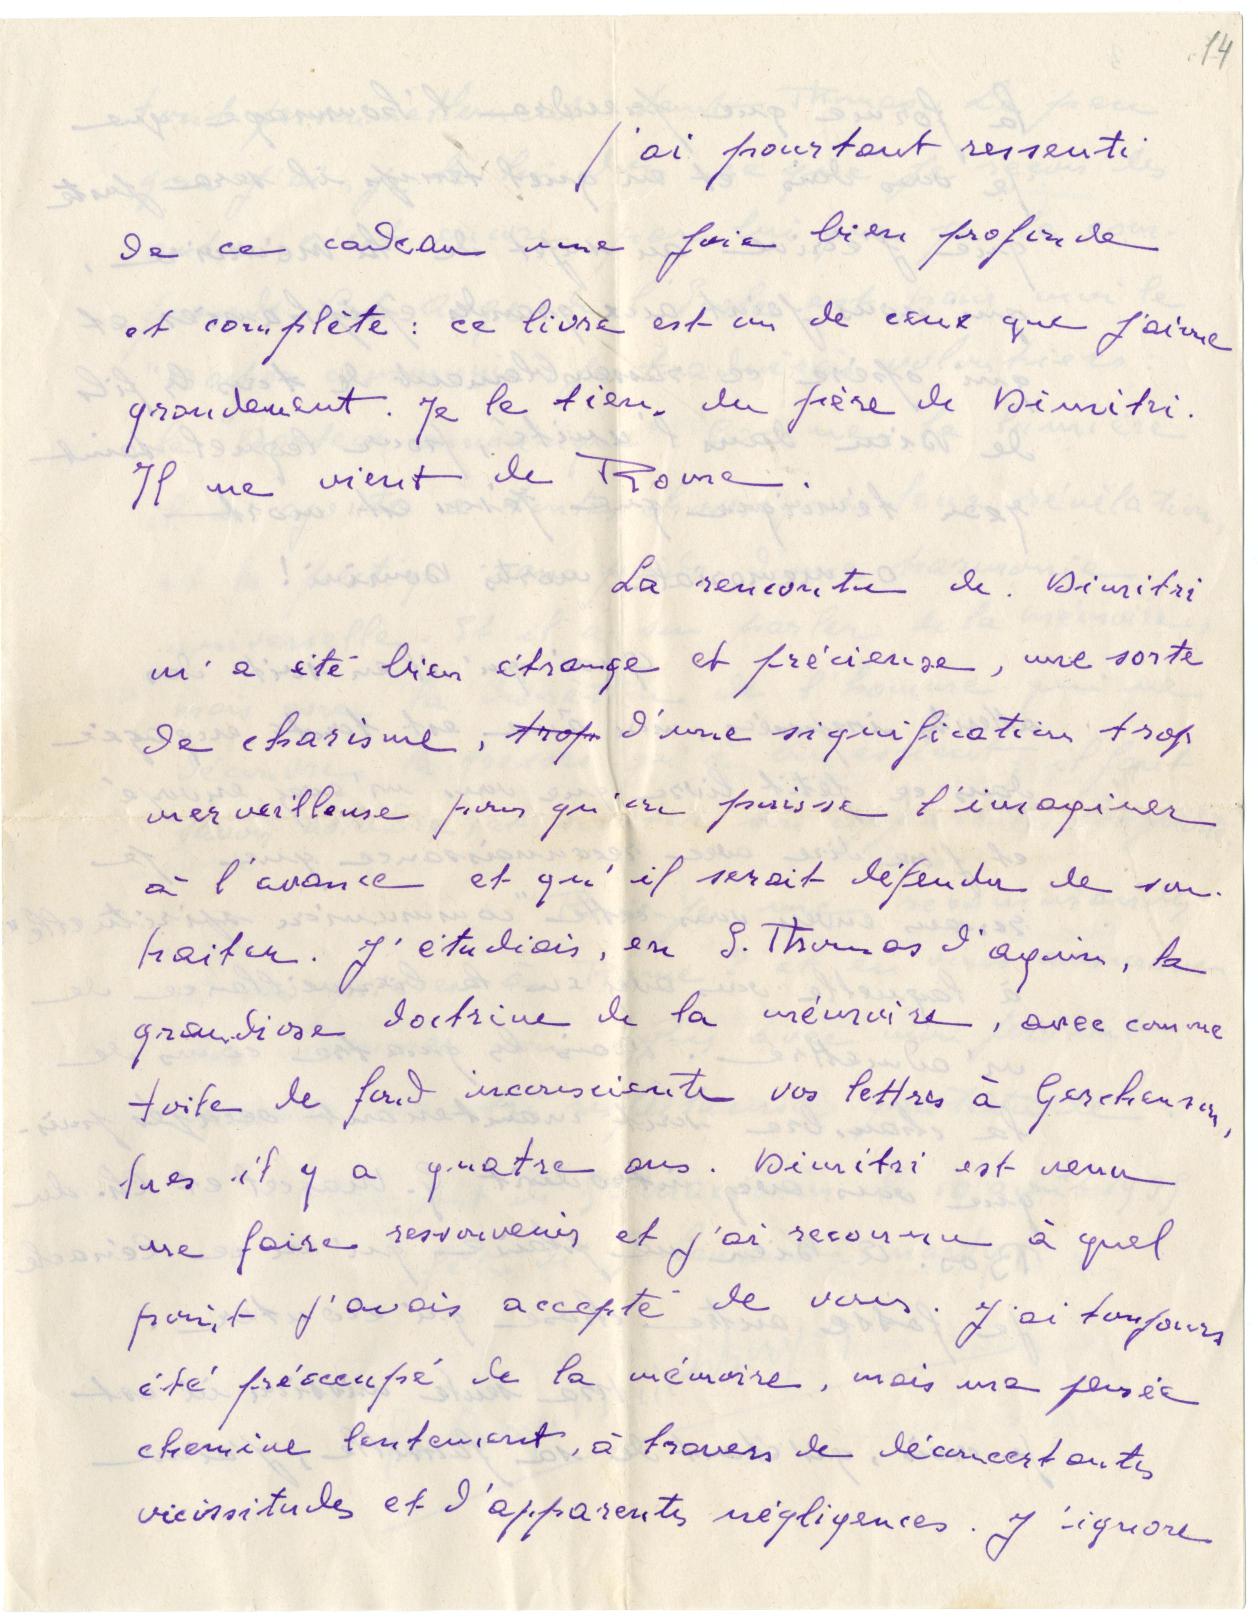 14
J'ai pourtant ressenti
de ce cadeau une joie bien profonde
et complète : ce livre est un de ceux que j'aime
grandement. Je le tiens du frère de Dimitri.
Il me vient de Rome.
La rencontre de Dimitri
m'a été bien étrange et précieuse, une sorte
de charisme, trop d'une signification trop
merveilleuse pour qu'on puisse l'imaginer
à l'avance et qu'il serait défendu de sou-
haiter. J'étudiais, en S. Thomas d'aquin, la
grandiose doctrine de la mémoire, avec comme
toile de fond inconsciente vos lettres à Gerchenson,
lues il y a quatre ans. Dimitri est venu
me faire ressouvenir et j'ai reconnu à quel
point j'avais accepté de vous. J'ai toujours
été préoccupé de la mémoire, mais ma pensée
chemine lentement, à travers de déconcertantes
vicissitudes et d'apparentes négligences. J'ignore